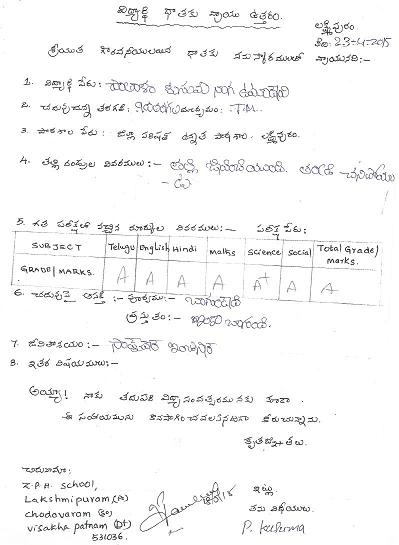 విద్యార్థి దాతకు వ్రాయు ఉత్తరం.
లక్ష్మీపురం
తేది: 23-4-2015
శ్రీయుత గౌరవనీయులయిన దాతకు నమస్కారములతో వ్రాయునది:-
1. విద్యార్థి పేరు:
2. చదువుచున్న తరగతి: మాధ్యమం: T.M.
3. పాఠశాల పేరు: జిల్లా పరిషత్ ఉన్నత పాఠశాల. లక్ష్మీపురం.
4. తల్లి దండ్రుల వివరములు:- తల్లి తండ్రి చనిపోయా
డు
5. గత పరీక్షలో వచ్చిన మార్కుల వివరములు:- పరీక్ష పేరు:
SUBJECT Telugu English Hindi maths science social Total Grade/ marks.
GRADE/MARKS. A A A A A+ A A
6. చదువుపై ఆసక్తి :- పూర్వము:-
ప్రస్తుతం:- ఇంకా బాగుంది.
7. జీవితాశయం:-
8. ఇతర విషయములు:-
అయ్యా! నాకు తదుపరి విద్యా సంవత్సరమునకు కూడా
ఈ సహాయమును కొనసాగించవలసినదిగా కోరుచున్నాను.
కృతజ్ఞతలు.
చిరునామా:
Z.P.H. School,
Lakshmipuram (P)
chodavaram (so)
visakha patnam (Dt)
531036.
ఇట్లు
తమ విధేయులు.
P. kusuma